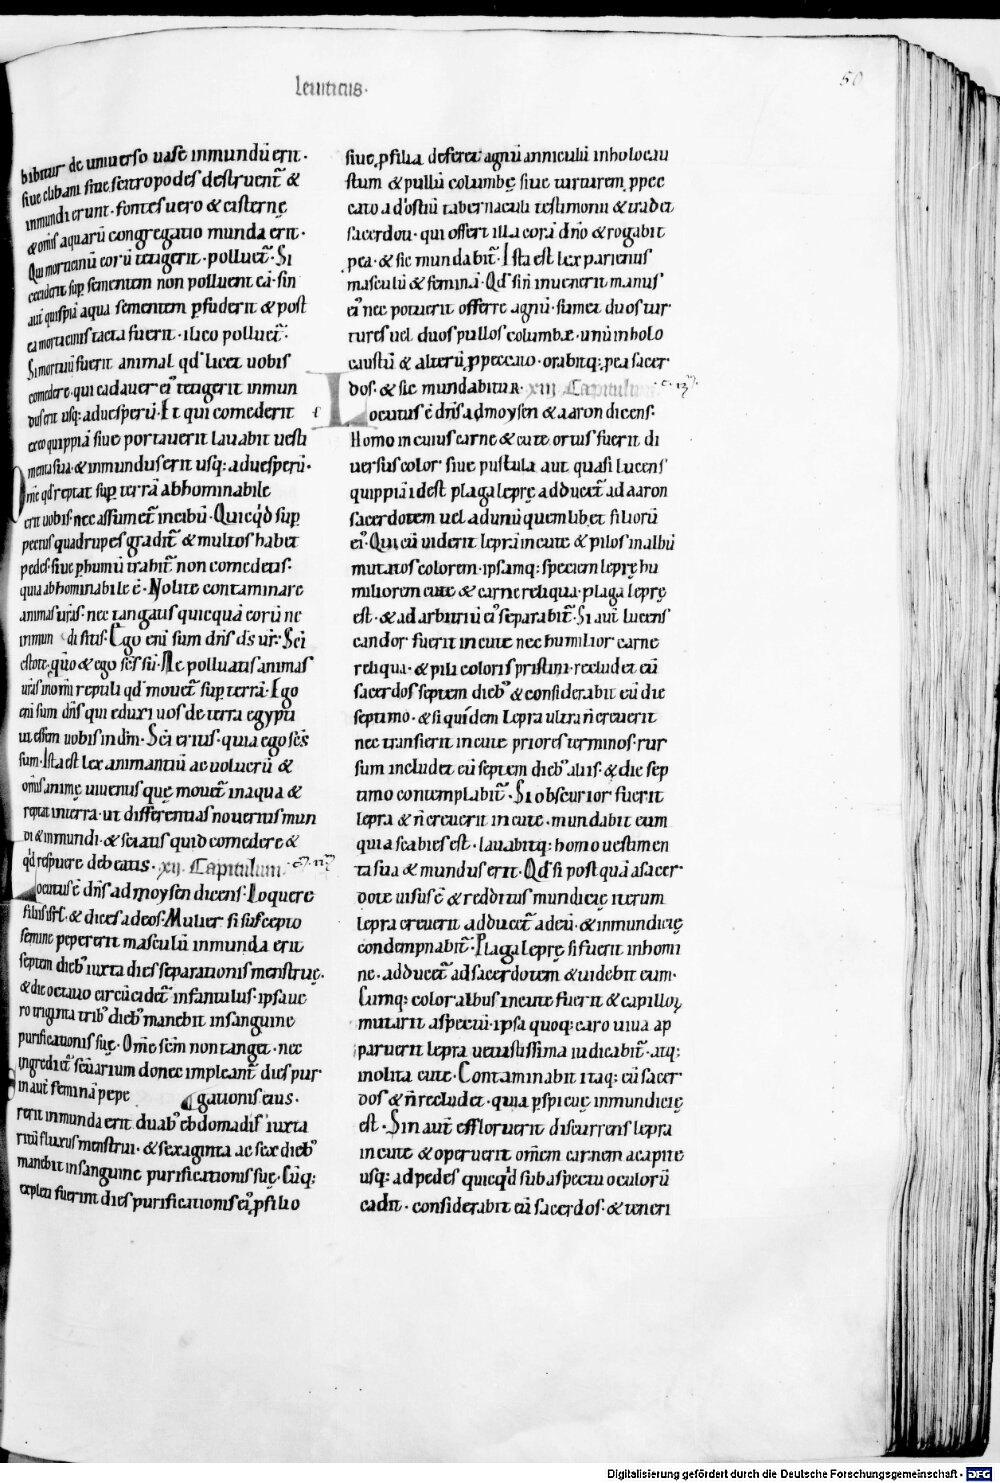 leuiticus.
50
bibitur de uniuerso uase inmundū erit.
siue clibani siue scitropodes destruent̄ &
inmundi erunt. fontes uero & cisternę
& om̄s aquarū congregatio munda erit.
Qui morticinū eorū tetigerit. polluet̄. Si
ceciderit sup̱ sementem non polluent eā. sin
aut̄ quispiā aqua sementem p̱fuderit & post
ea morticinis tacta fuerit. ilico polluet̄.
Si mortuū fuerit animal qd̄ licet uobis
comedere. qui cadauer ei᾽ tetigerit inmun
dus erit usq; aduesperū. Et qui comederit
ex eo quippiā siue portauerit lauabit uesti
menta sua. & inmundus erit usq; aduesperū.
Om̄e qd̄ reptat sup̱ terrā abhominabile
erit uobis. nec assumet̄ in cibū. Quicq̇d sup̱
pectus quadrupes gradit̄ & multos habet
pedes. siue p̱ humū trahit̄. non comedetis.
quia abhominabile ē. Nolite contaminare
animas ur̄as. nec tangatis quicquā eorū ne
inmun di sitis. Ego eni sum dn̄s ds ur̄. Sc̄i
estote. qm̄o & ego sc̄s sū. Ne polluatis animas
ur̄as in om̄i reptili qd̄ mouet̄ sup̱ terrā. Ego
eni sum dn̄s qui eduxi uos de terra egypti
ut essem uobis in dm̄. Sc̄i eritis. quia ego sc̄s
sum. Ista est lex animantiū ac uolucrū &
om̄is animę uiuentis quę mouet̄ in aqua &
reptat in terra. ut differentias noueritis mun
di & inmundi. & sciatis quid comedere &
q̇d respuere debeatis. xij. Capitulum. c. 12.
Locutus ē dn̄s ad moysen dicens. Loquere
filiis isrl̄. & dices ad eos. Mulier si suscepto
semine pepererit masculū inmunda erit
septem dieb᾽ iuxta dies separationis menstruę.
& die octauo circūcidet̄ infantulus. ipsa ue
ro triginta trib᾽ dieb᾽ manebit in sanguine
purificationis suę. Om̄e sc̄m non tanget. nec
ingrediet̄ sc̄uarium donec impleant̄ dies pur
Sin aut̄ feminā pepe gationis eius.
rerit inmunda erit duab᾽ ebdomadis iuxta
ritū fluxus menstrui. & sexaginta ac sex dieb᾽
manebit in sanguine purificationis suę. Cūq;
expleti fuerint dies purificationis ei᾽ p̱ filio
siue p̱ filia. deferet agnū anniculū in holocau
stum & pullū columbę siue turturem p̱ pec
cato ad ostiū tabernaculi testimonii & tradet
sacerdoti. qui offert illa corā dn̄o & rogabit
p̱ ea. & sic mundabit̄. Ista est lex parientis
masculū & feminā. Qd̄ sin̄ inuenerit manus
ei᾽ nec potuerit offerre agnū. sumet duos tur
tures uel duos pullos columbæ. unū in holo
caustū & alterū p̱ peccato. orabitq; p̱ ea sacer
dos. & sic mundabitur. xiij Capitulum c. 13.
l Locutus ē dn̄s ad moysen & aaron dicens.
Homo in cuius carne & cute ortus fuerit di
uersus color siue pustula aut quasi lucens
quippiā id est plaga leprę adducet̄ ad aaron
sacerdotem uel ad unū quemlibet filiorū
ei᾽. Qui cū uiderit leprā in cute & pilos in albū
mutatos colorem. ipsamq; speciem leprę hu
miliorem cute & carne reliqua. plaga leprę
est. & ad arbitriū ei᾽ separabit̄. Si aut̄ lucens
candor fuerit in cute nec humilior carne
reliqua. & pili coloris pristini. recludet eū
sacerdos septem dieb᾽ & considerabit eū die
septimo. & si quidem lepra ultra n̄ creuerit
nec transierit in cute priores terminos. rur
sum includet eū septem dieb᾽ aliis. & die sep
timo contemplabit̄. Si obscurior fuerit
lepra & n̄ creuerit in cute. mundabit eum
quia scabies est. lauabitq; homo uestimen
ta sua & mundus erit. Qd̄ si postquā a sacer
dote uisus ē & redditus mundicię iterum
lepra creuerit adducet̄ ad eū. & inmundicię
condempnabit̄. Plaga leprę si fuerit in homi
ne. adducet̄ ad sacerdotem & uidebit eum.
Cumq; color albus in cute fuerit & capilloꝝ
mutarit aspectū. ipsa quoq; caro uiua ap
paruerit lepra uetustissima iudicabit̄. atq;
inolita cute. Contaminabit itaq; eū sacer
dos & n̄ recludet. quia p̱spicuę inmundicię
est. Sin aut̄ effloruerit discurrens lepra
in cute & operuerit om̄em carnem a capite
usq; ad pedes quicq̇d sub aspectu oculorū
cadit. considerabit eū sacerdos. & teneri
Digitalisierung gefördert durch die Deutsche Forschungsgemeinschaft - DFG